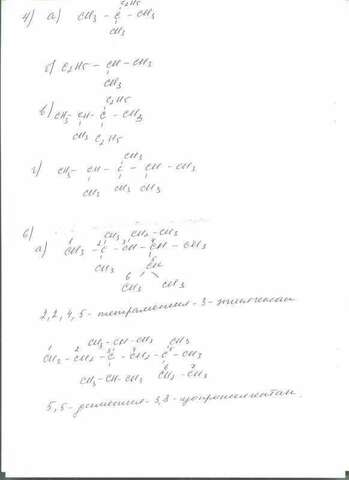 4) а) C2H5
CH3 - C - CH3
CH3
б) C2H5 - CH - CH3
CH3
в) C2H5
CH3 - CH - C - CH3
CH3 C2H5
г) CH3
CH3 - CH - C - CH - CH3
CH3 CH3 CH3
6)
а) CH3 CH2 - CH3
1 2 3 4
CH3 - C - CH - CH - CH3
CH3 5 CH
6
CH3 CH3
2,2,4,5 - тетраметил - 3 - этилгексан
CH3 - CH - CH3 CH3
1 2 3 4 5
CH3 - CH2 - C - CH2 - C - CH3
6 7
CH3 - CH - CH3 CH2 - CH3
5,5 - диметил - 3,3 -